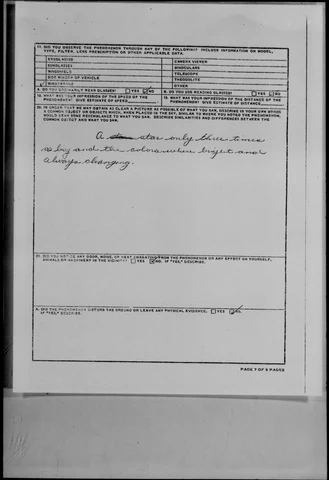 11. DID YOU OBSERVE THE PHENOMENON THROUGH ANY OF THE FOLLOWING? INCLUDE INFORMATION ON MODEL, TYPE, FILTER, LENS PRESCRIPTION OR OTHER APPLICABLE DATA.
EYEGLASSES CAMERA VIEWER
SUNGLASSES BINOCULARS
WINDSHIELD TELESCOPE
SIDE WINDOW OF VEHICLE THEODOLITE
WINDOWPANE OTHER
DO YOU ORDINARILY WEAR GLASSES? YES NO DO YOU USE READING GLASSES? YES NO
WHAT WAS YOUR IMPRESSION OF THE SPEED OF THE PHENOMENON? GIVE ESTIMATE OF SPEED WHAT WAS YOUR IMPRESSION OF THE DISTANCE OF THE PHENOMENON? GIVE ESTIMATE OF DISTANCE
IN ORDER THAT WE MAY OBTAIN AS CLEAR A PICTURE AS POSSIBLE OF WHAT YOU SAW, DESCRIBE IN YOUR OWN WORDS A COMMON OBJECT OR OBJECTS WHICH, WHEN PLACED IN THE SKY, SIMILAR TO WHERE YOU NOTED THE PHENOMENON, WOULD BEAR SOME RESEMBLANCE TO WHAT YOU SAW. DESCRIBE SIMILARITIES AND DIFFERENCES BETWEEN THE COMMON OBJECT AND WHAT YOU SAW.
A star only three times
as big and the colors where bright and
always changing.
DID YOU NOTICE ANY ODOR, NOISE, OR HEAT EMANATING FROM THE PHENOMENON OR ANY EFFECT ON YOURSELF, ANIMALS OR MACHINERY IN THE VICINITY? YES NO. IF "YES," DESCRIBE.
DID THE PHENOMENON DISTURB THE GROUND OR LEAVE ANY PHYSICAL EVIDENCE. YES NO.
IF "YES," DESCRIBE.
PAGE 7 OF 9 PAGES